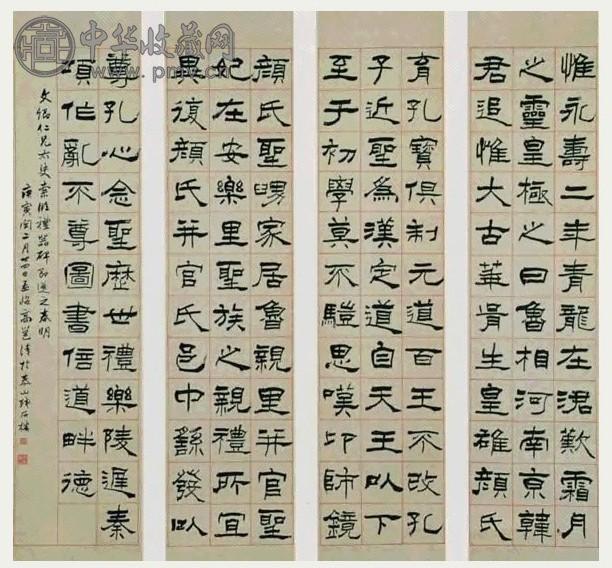 中华收藏网
惟永壽二年青龍在涒歎霜月
之靈皇極之日魯相河南京韓
君追惟大古華胥生皇雄顏氏
育孔寶俱制元道百王不改孔
子近聖為漢定道自天王以下
至于初學莫不騹思嘆卬師鏡
顏氏聖舅家居魯親里并官聖
妃在安樂里聖族之親禮所宜
異復顏氏并官氏邑中繇發以
尊孔心念聖歷世禮樂陵遲秦
項作亂不尊圖書倍道畔德
文 仁兄太史索臨禮器碑即 之
庚寅閏二月廿四日 高邕 於泰山殘石樓